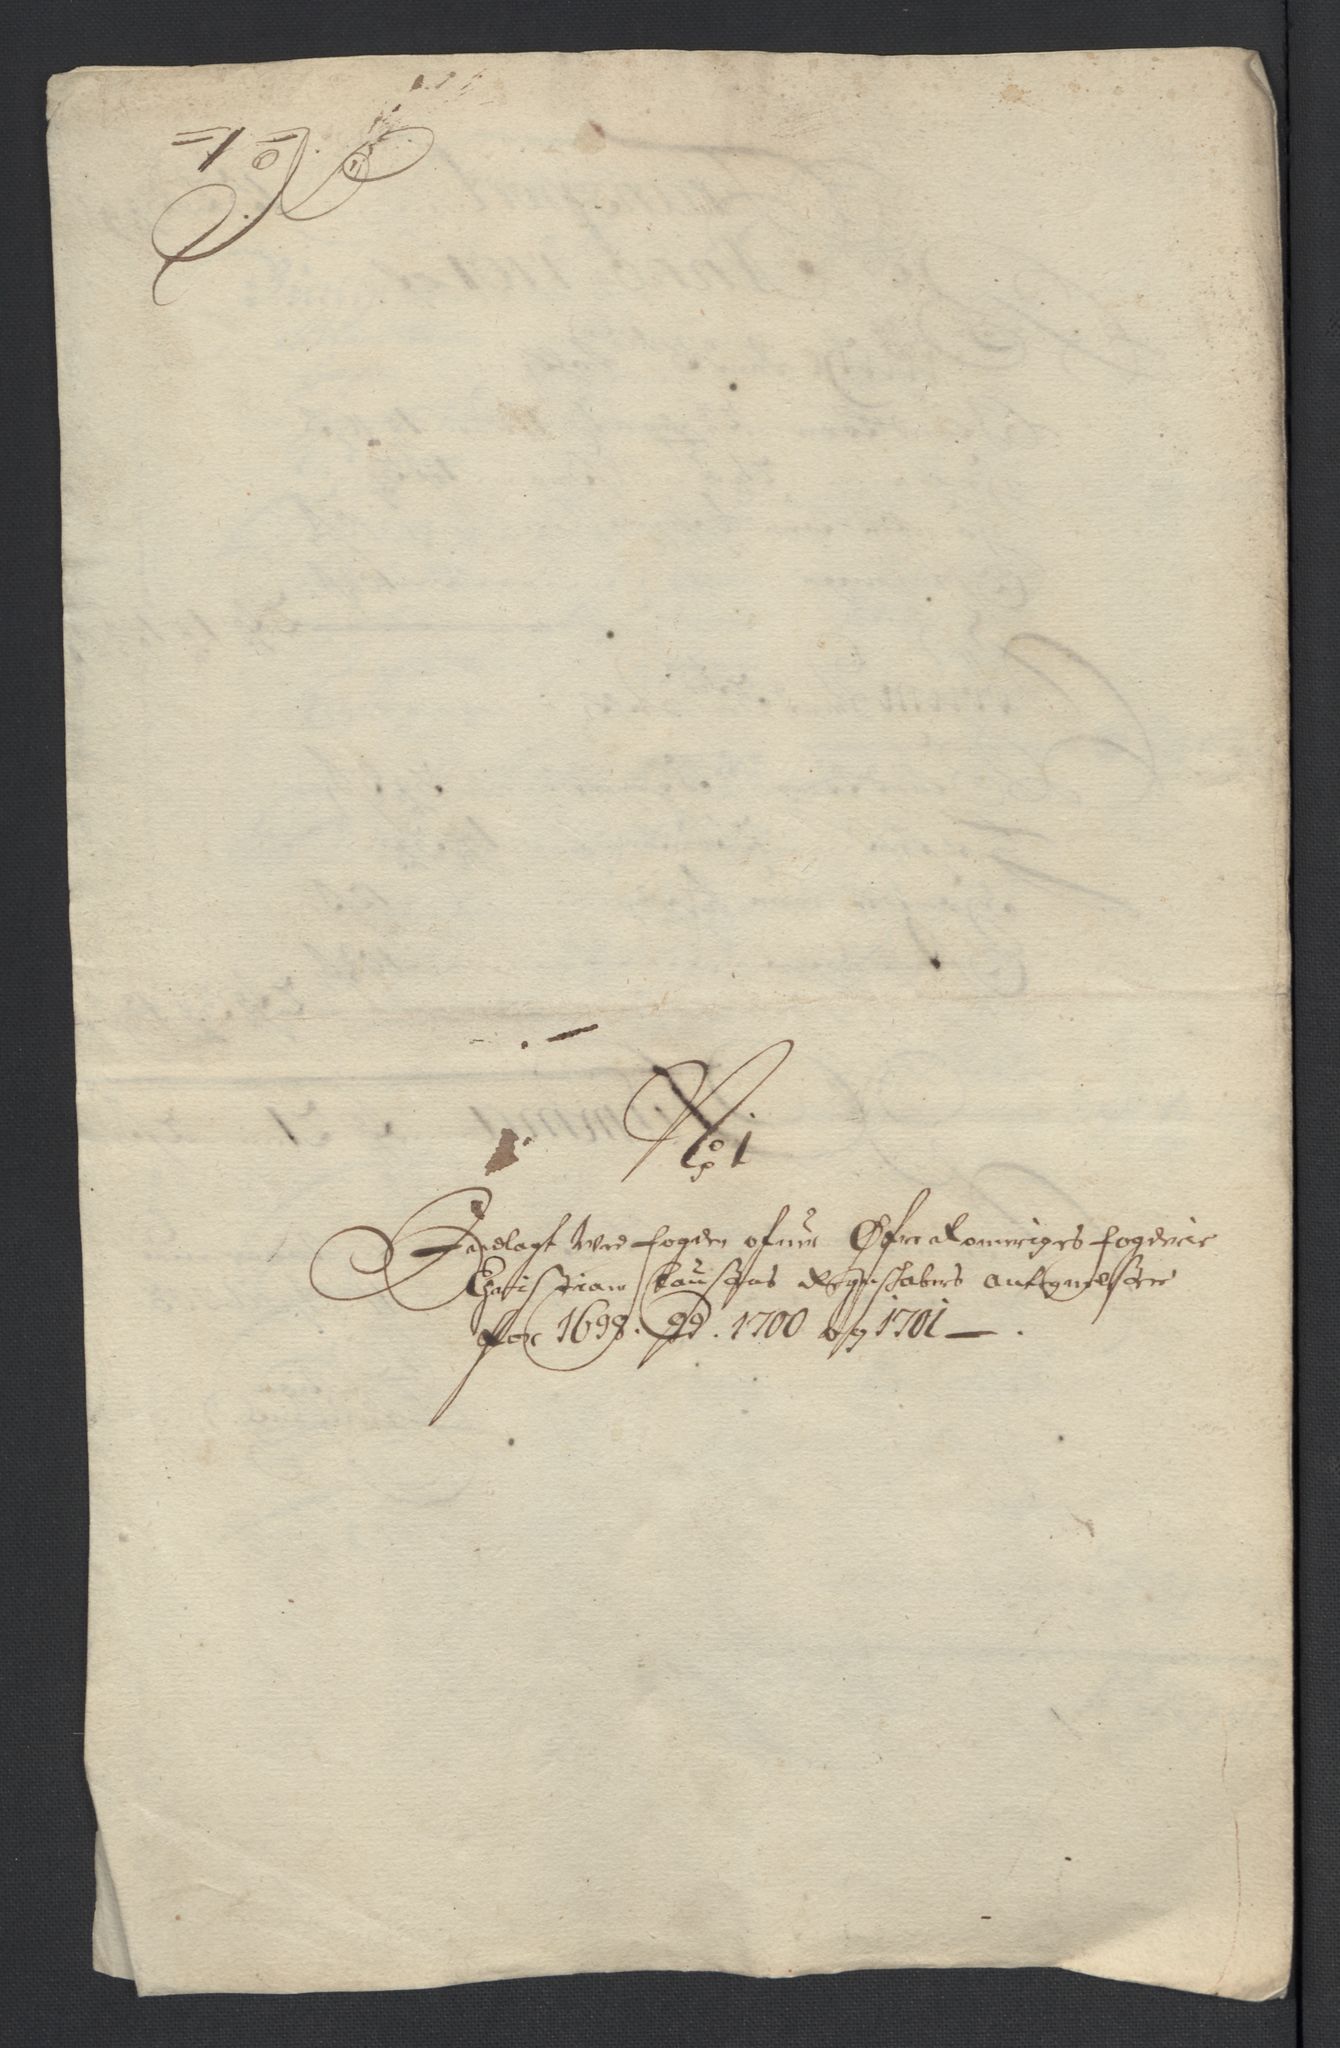 No 1
Indlagt Wed fogden ofuer Øfre Romeriges fogderie
Christian Clausens Regenskabers Antegnelser
for 1698. 99. 1700 og 1701 —.